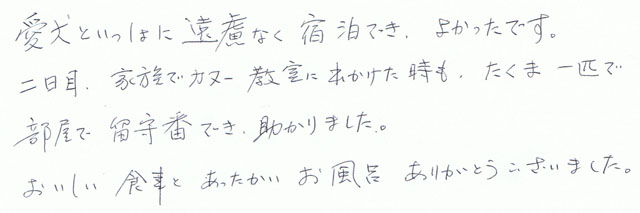 愛犬といっしょに遠慮なく宿泊でき、よかったです。
二日目、家族でカヌー教室に出かけた時も、たくま一匹で
部屋で留守番でき、助かりました。
おいしい食事とあったかいお風呂ありがとうございました。